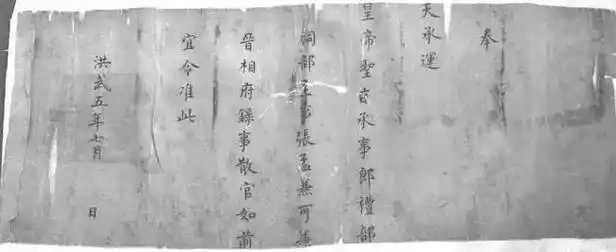 奉
天承運
皇帝聖旨承事郎禮部
祠部主事張孟兼可
晉相府錄事散官如前
宜令准此
洪武五年七月 日